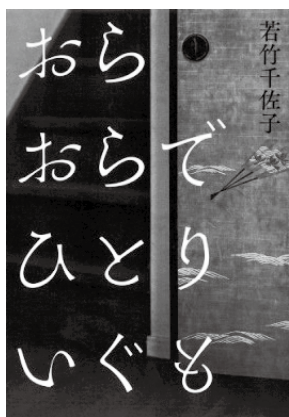 若竹千佐子
おら
おらで
ひとり
いぐも